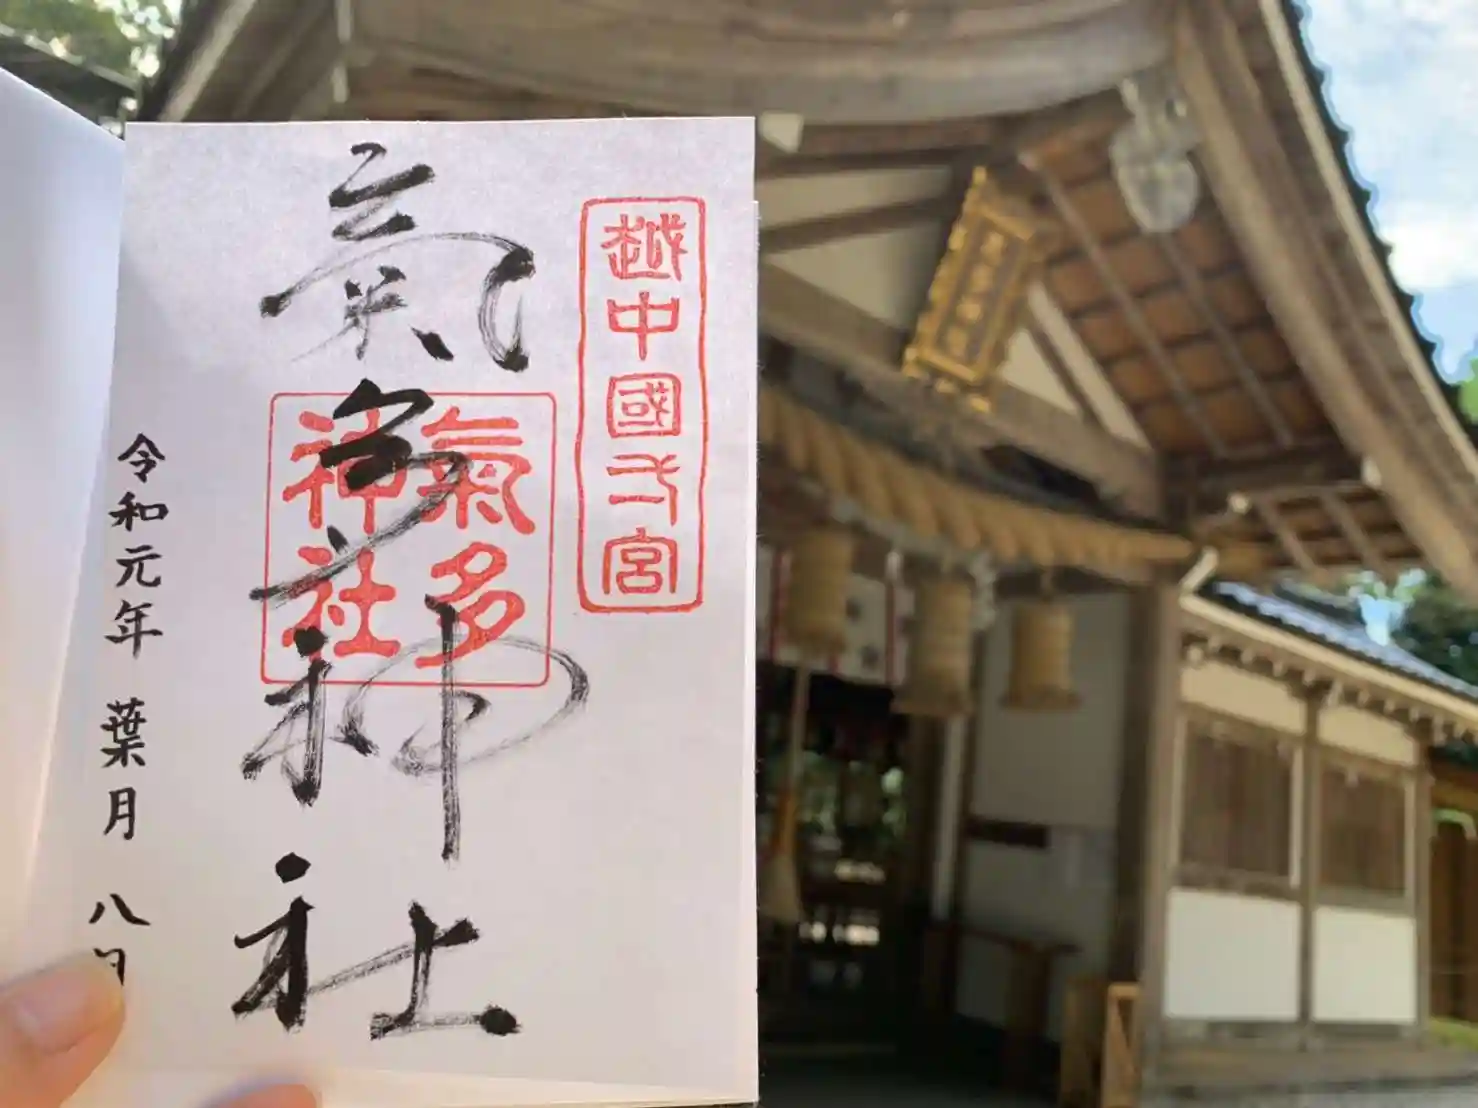 越中國一宮
氣多神社
氣多
神社
令和元年 葉月 八日